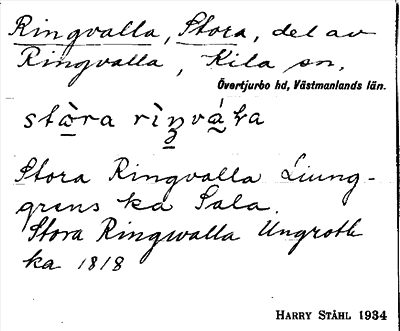 Ringvalla, Stora, del av
Ringvalla, Kila sn,
Övertjurbo hd, Västmanlands län.
stòra rìŋvála
Stora Ringvalla Liung-
grens ka Sala.
Stora Ringwalla Ungroth
ka 1818
HARRY STÅHL 1934